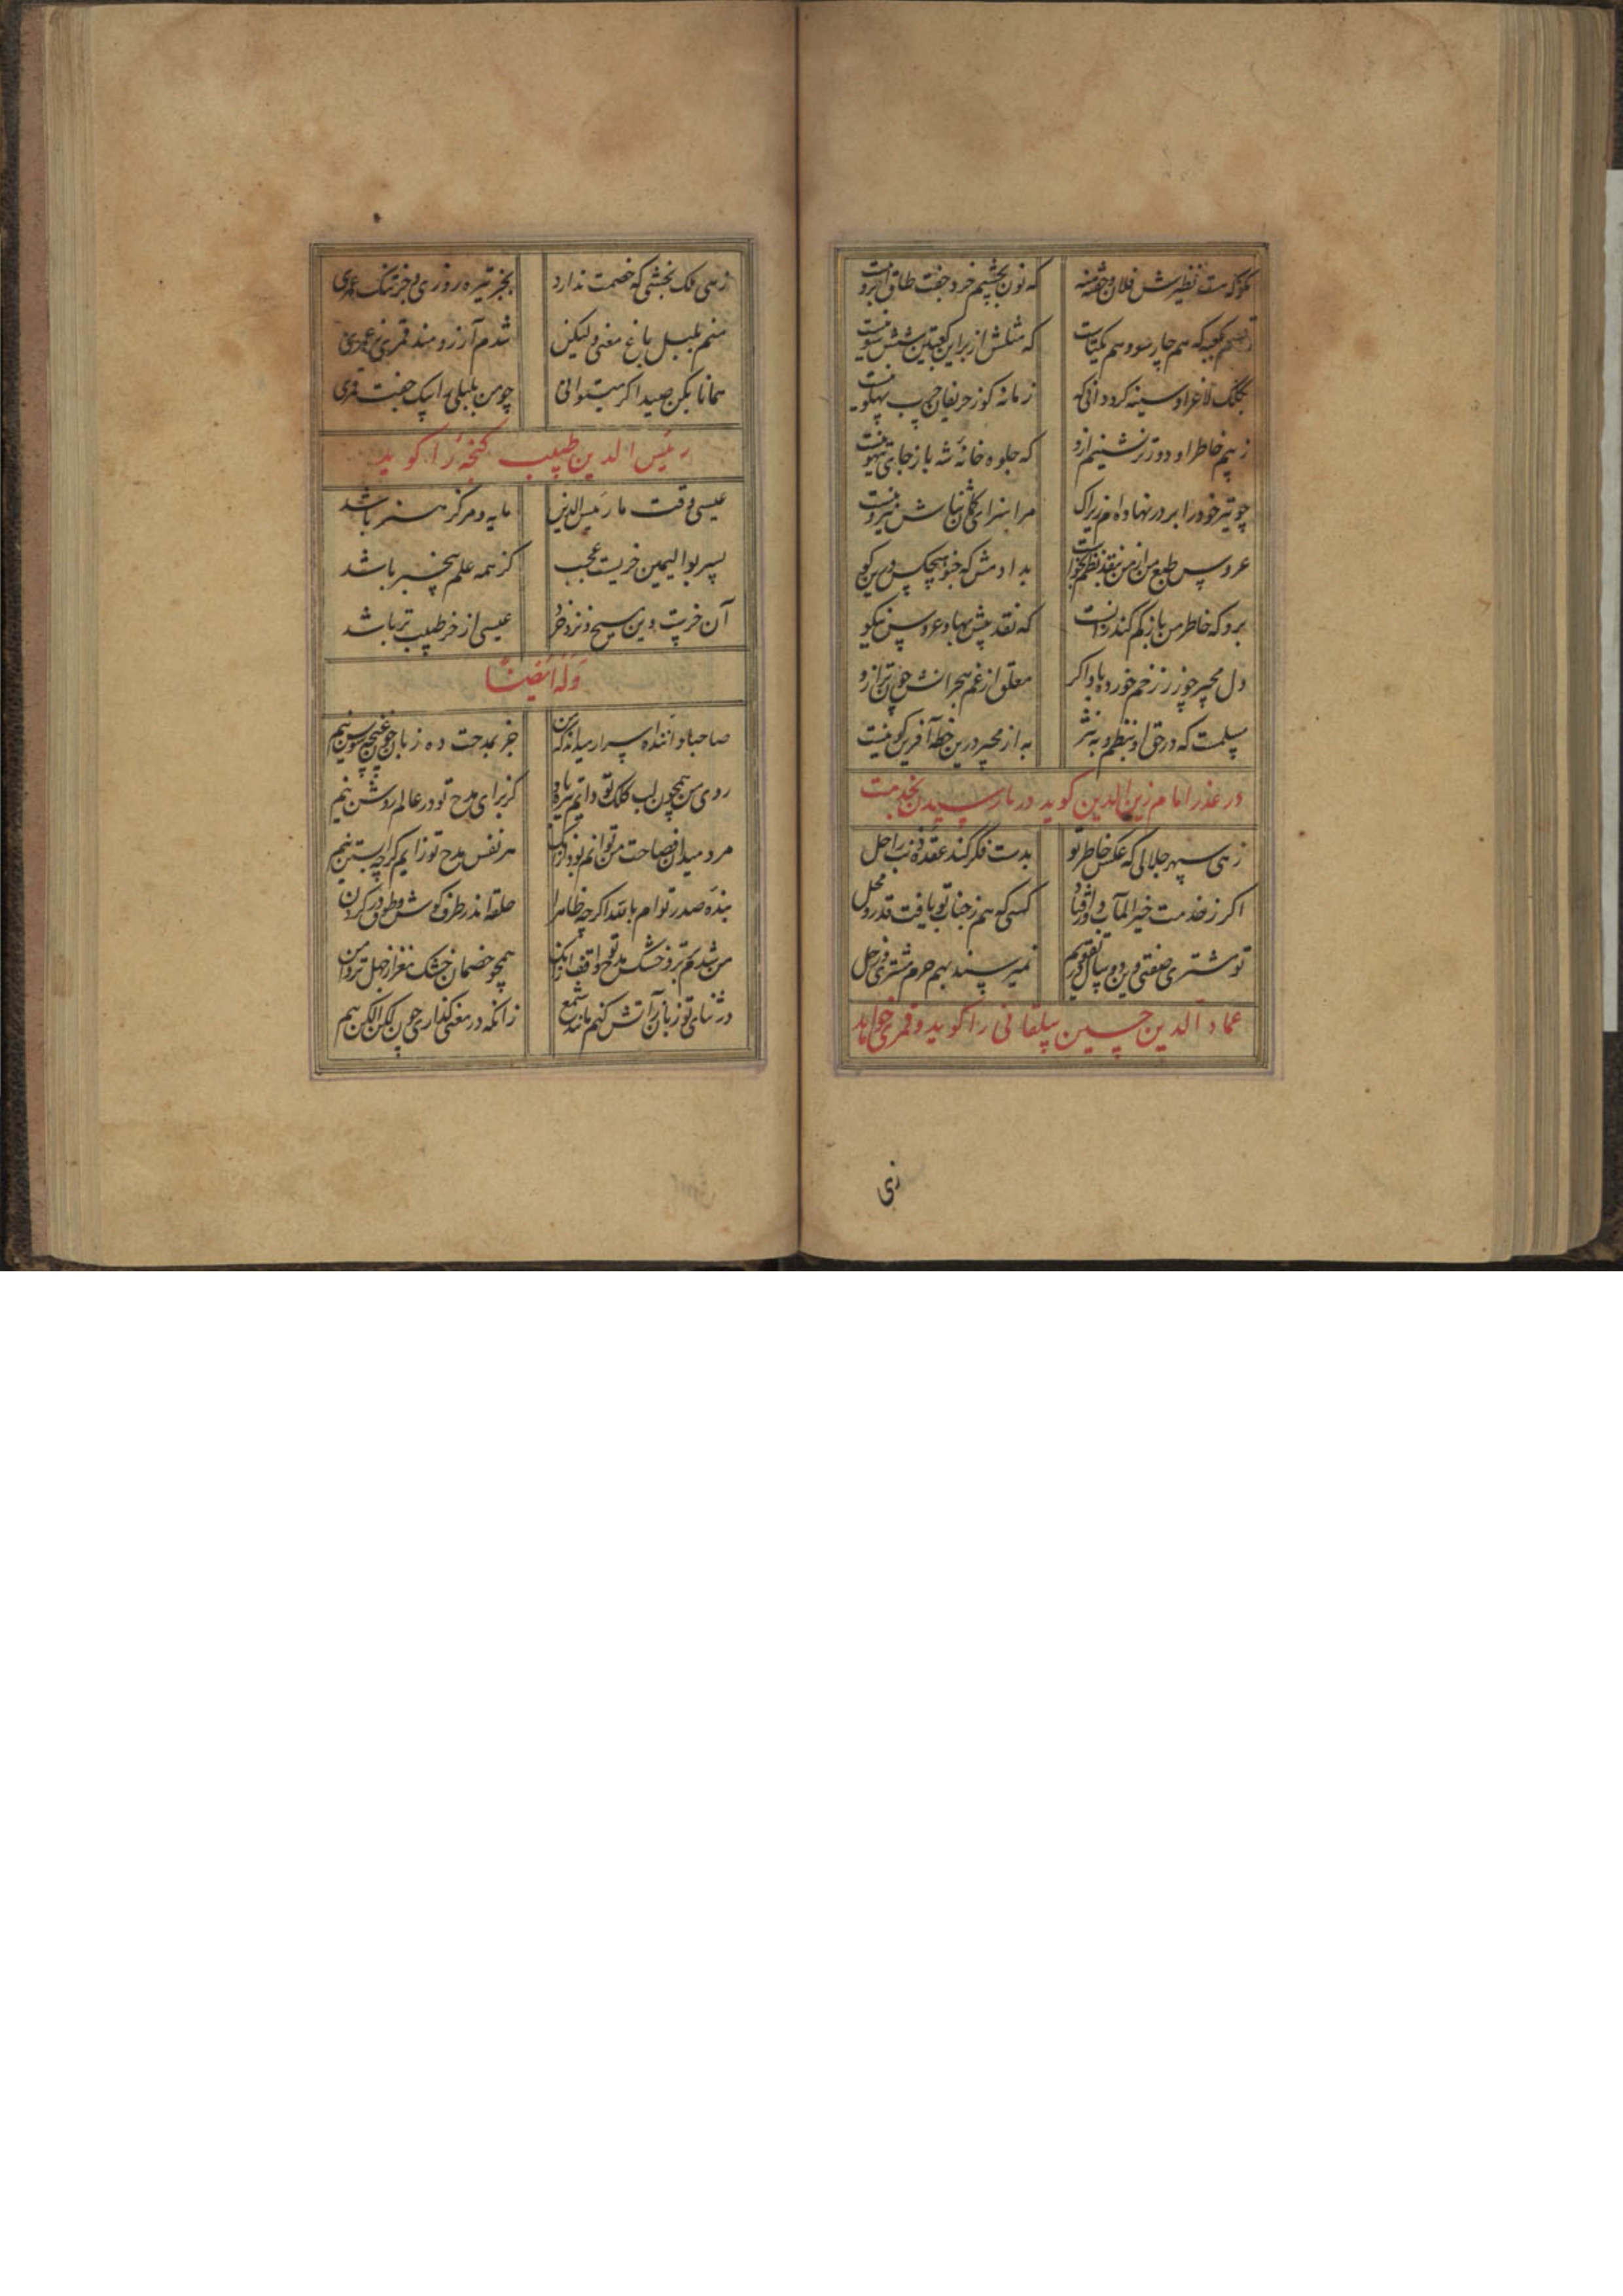 مگو که هست نظیرش فلان و
که نون بچشم خرد جفت طاق ابرو نیست
کعبه که هم چار سو و هم یکتاست
که مثلش از بر این کعبتین شش سو نیست
کلک لاغر او سینه کرد دانی که
زمانه کوز حریفان چرب پهلو نیست
ز بیم خاطر او دورتر نشینم ازو
که جلوه خانهٔ شه باز جای تیهو نیست
چو تیر خود را بر در نهاده‌ام زیراک
مرا سزای ثناش نیرو نیست
عروس طبع من از من نقد نظم بخواست
بدادمش که جزو هیچکس درین کو
برو که خاطر من باز کم کند دانست
که نقد پیش بها و عروس نیکو
دل مجیر خور زخم خورده باد اگر
معلق از غم هجرانش چون ترازو
مسلمست که در حق او بنظم و به نثر
به از مجیر درین خطه آفرین گو نیست
در عذر امام زین الدین گوید در نارسیدن بخدمت
زهی سپهر جلالی که عکس خاطر تو
بدست فکر کند عقدهٔ ذنب را حل
اگر ز خدمت خیر المآب دور افتاد
کسی که هم ز جناب تو یافت قدر و محل
تو مشتری صفتی وین دو سال تقویم
نمیرسند بهم جرم مشتری و زحل
عماد الدین حسین بیلقانی را گوید و قمری خواهد
زی
زهی ملک بخشی که خصمت ندارد
بجز تیره روزی و جز تنگ عمری
منم بلبل باغ معنی ولیکن
شدم آرزومند قمری و عمری
همانا بکن صید اگر میتوانی
چو من بلبلی را بیک جفت قمری
رئیس الدین طبیب گنجه را گوید
عیسی وقت ما رئیس الدین
مایه و مرکز هنر باشد
پسر بوالیمین خریست عجب
کز همه علم بیخبر باشد
آن خرست وین مسیح و نزد خرد
عیسی از خر طبیب تر باشد
وله ایضا
صاحبا دانندهٔ اسرار میداند که من
جز بمدحت ده زبان چون غنچه سوسن نیم
روی من همچون لب کلک تو دایم تیره باد
گر برای مدح تو در عالم روشن نیم
مرد میدان فصاحت من توانم بود زانک
هر نفس مدح تو زایم گرچه آبستن نیم
بندهٔ صدر توام بالله اگرچه ظاهرا
حلقه اندر طرف گوش و طوق در گردن نیم
من شدم بر تر و خشک مدح تو واقف زانک
همچو خصمان خشک مغز از جهل تر دامن نیم
در ثنای تو زبان آتش کنم مانند شمع
زانکه در معنی گذاری چون لگن الکن نیم